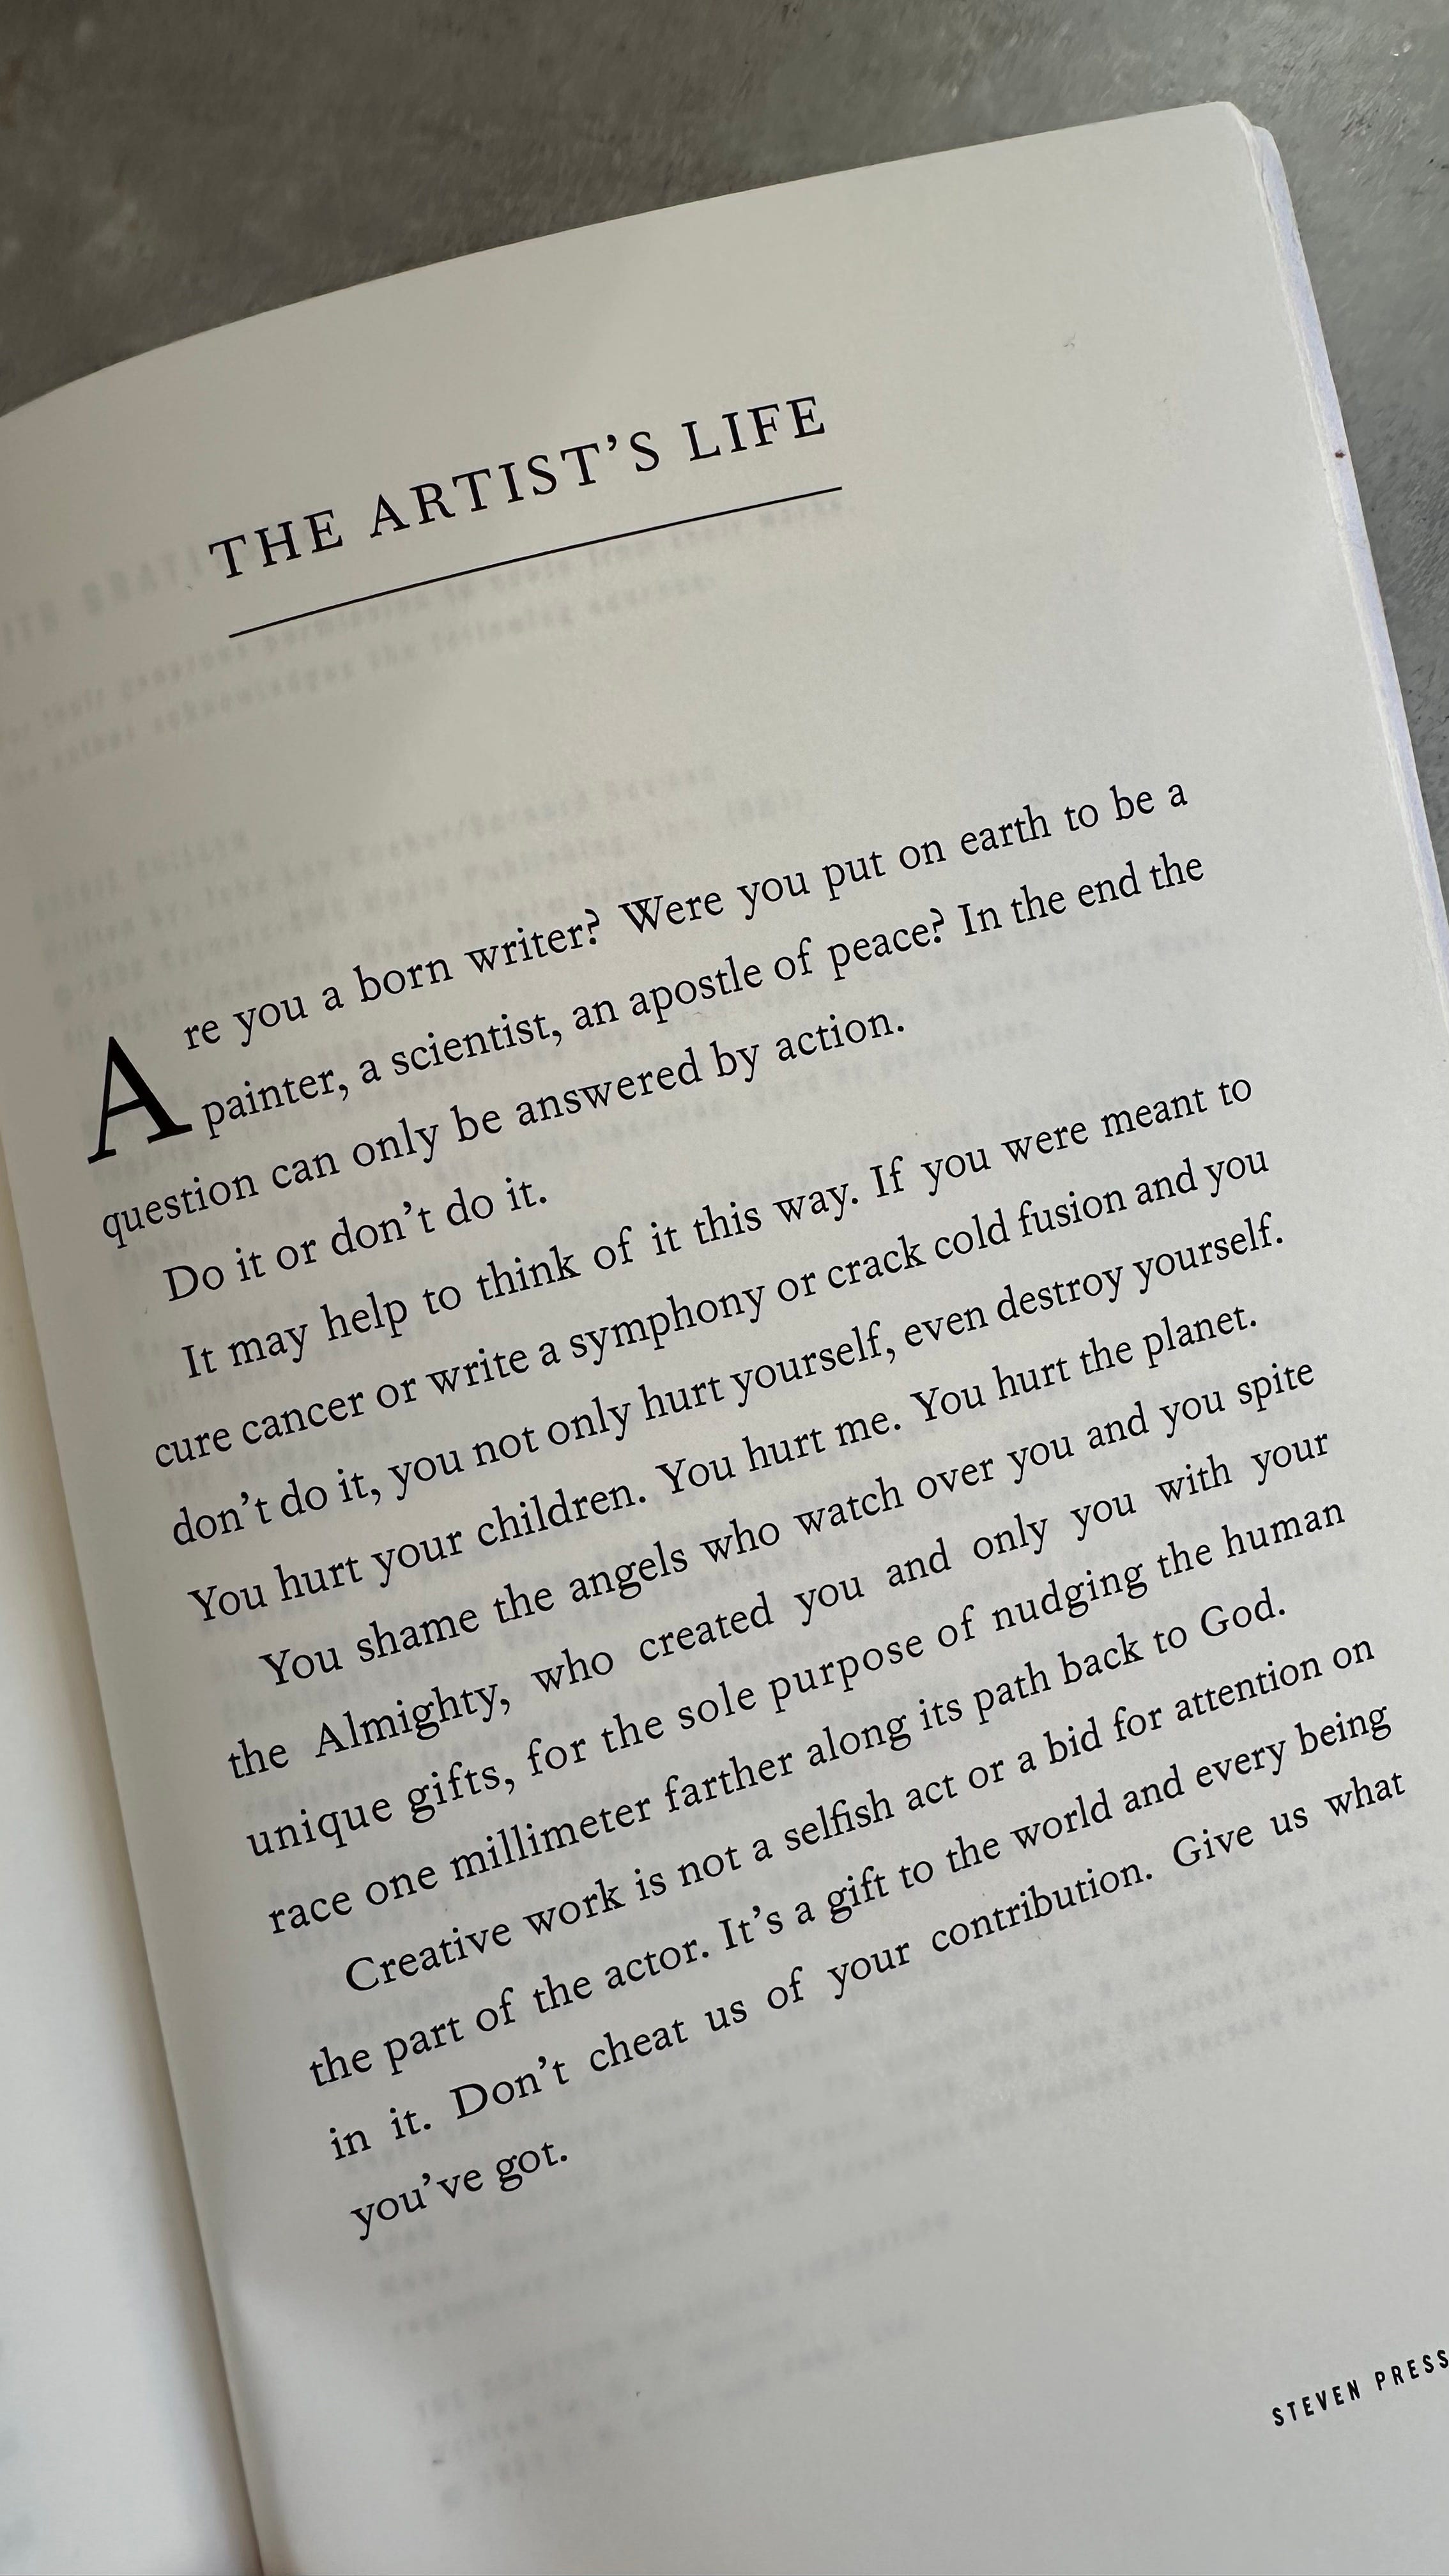 THE ARTIST'S LIFE
Are you a born writer? Were you put on earth to be a
painter, a scientist, an apostle of peace? In the end the
question can only be answered by action.
Do it or don't do it.
It may help to think of it this way. If you were meant to
cure cancer or write a symphony or crack cold fusion and you
don't do it, you not only hurt yourself, even destroy yourself.
You hurt your children. You hurt me. You hurt the planet.
You shame the angels who watch over you and you spite
the Almighty, who created you and only you with your
unique gifts, for the sole purpose of nudging the human
race one millimeter farther along its path back to God.
Creative work is not a selfish act or a bid for attention on
the part of the actor. It's a gift to the world and every being
in it. Don't cheat us of your contribution. Give us what
you've got.
STEVEN PRESS